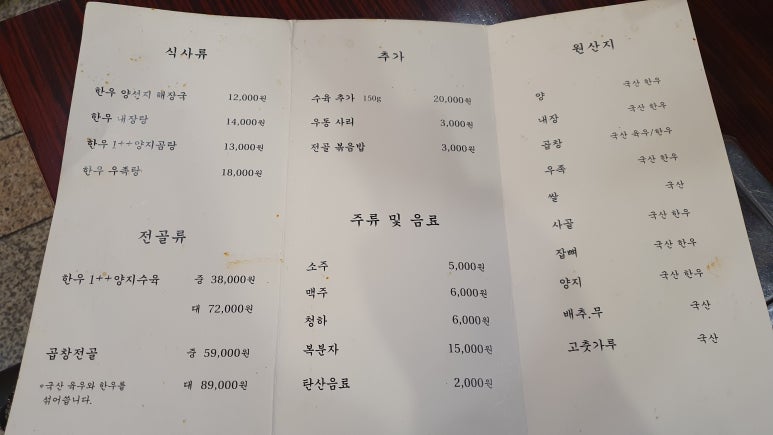 식사류
한우 양선지 해장국 12,000원
한우 내장탕 14,000원
한우 1++양지곰탕 13,000원
한우 우족탕 18,000원
전골류
한우 1++양지수육 중 38,000원
대 72,000원
곱창전골 중 59,000원
*국산 육우와 한우를 대 89,000원
섞어씁니다.
추가
수육 추가 150g 20,000원
우동 사리 3,000원
전골 볶음밥 3,000원
주류 및 음료
소주 5,000원
맥주 6,000원
청하 6,000원
복분자 15,000원
탄산음료 2,000원
원산지
양 국산 한우
내장 국산 한우
곱창 국산 육우/한우
우족 국산 한우
쌀 국산
사골 국산 한우
잡뼈 국산 한우
양지 국산 한우
배추.무 국산
고춧가루 국산